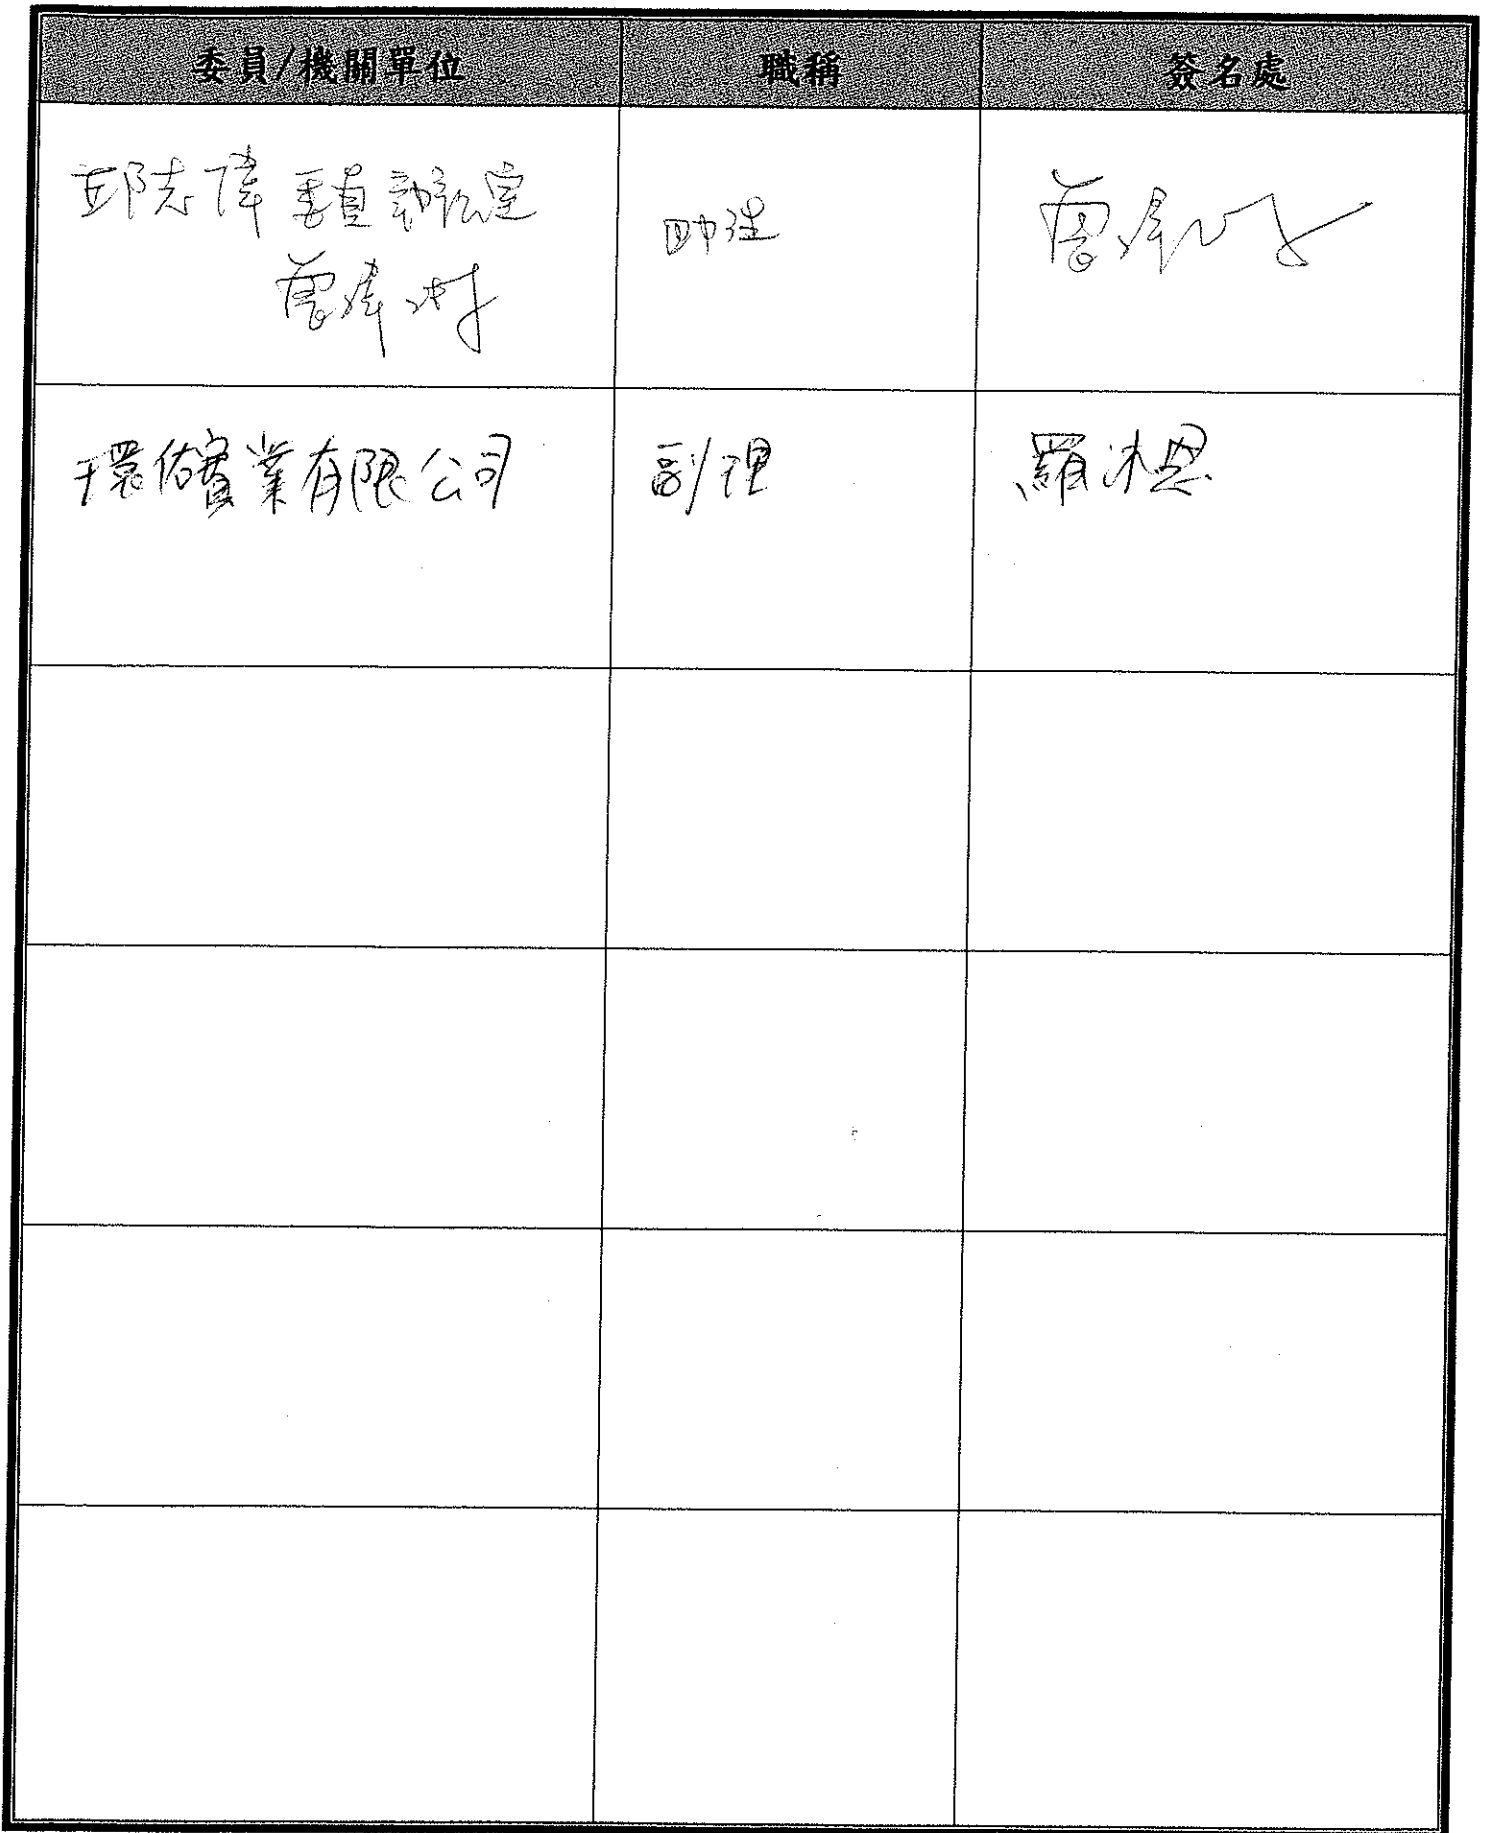 委員/機關單位 職稱 簽名處
邱志偉 委員 辦公室 助理
環佑實業有限公司 副理 羅沐恩